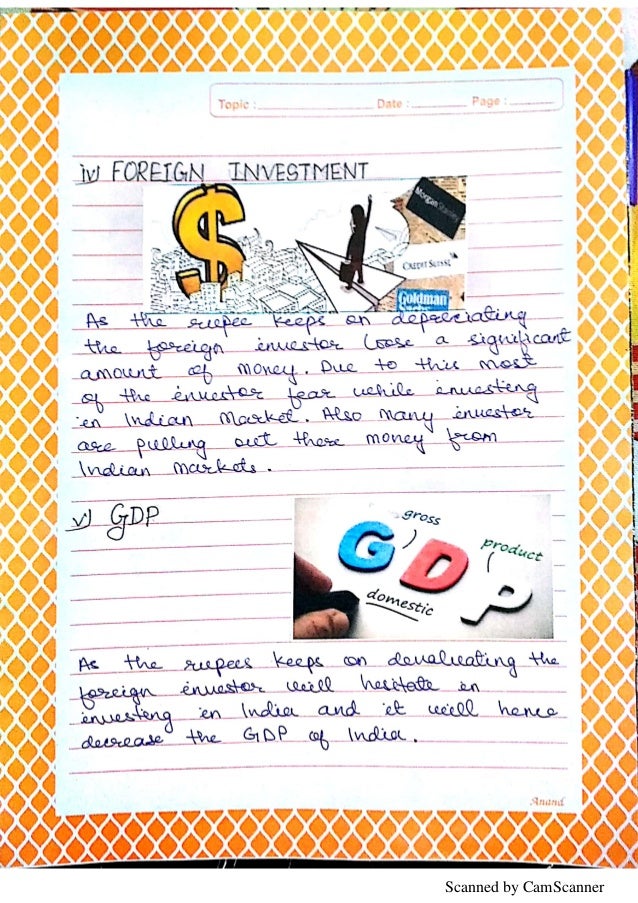 Topic : Date : Page :
iv) FOREIGN INVESTMENT
Morgan Stanley
CREDIT SUISSE
Goldman
As the rupee keeps on depreciating
the foreign investor loose a significant
amount of money. Due to this most
of the investor fear while investing
in Indian Market. Also many investor
are pulling out there money from
Indian markets.
v) GDP
gross
product
GDP
domestic
As the rupees keeps on devaluating the
foreign investor will hesitate in
investing in India and it will hence
decrease the GDP of India.
Anand
Scanned by CamScanner